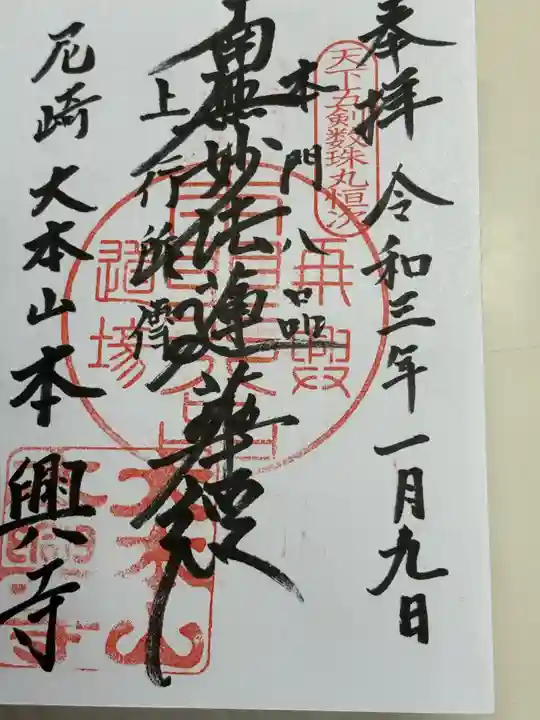 奉拝 令和三年一月九日
天下五剣数珠丸恒次
本門八品
南無妙法蓮華経
上行所傳
再興
道場
尼崎 大本山本興寺